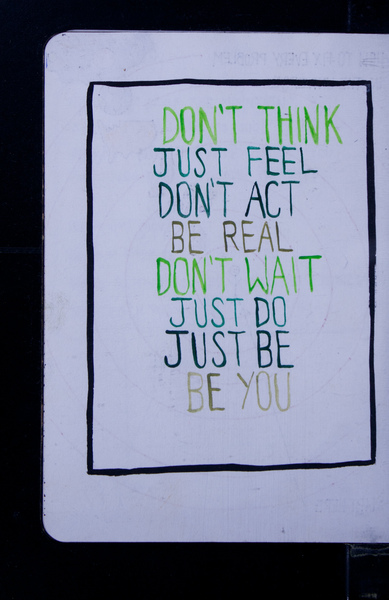 DON'T THINK
JUST FEEL
DON'T ACT
BE REAL
DON'T WAIT
JUST DO
JUST BE
BE YOU